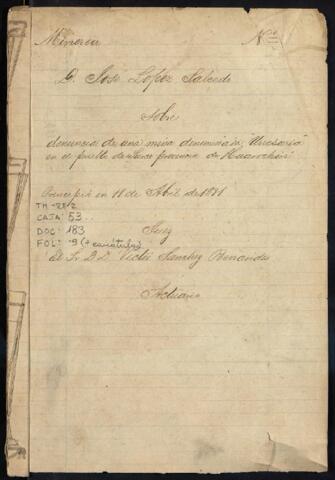 Mineria Nº
D. José Lopez Salcedo
Sobre
denuncia de una mina denominada
en el pueblo de provincia de Huarochirí
Principió en 11 de Abril de 1891
TH-
CAJA: 53
DOC: 183
FOL: 9 (+ carátula)
Juez
El Sr D. D. Victor Sanchez Benavides
Actuario